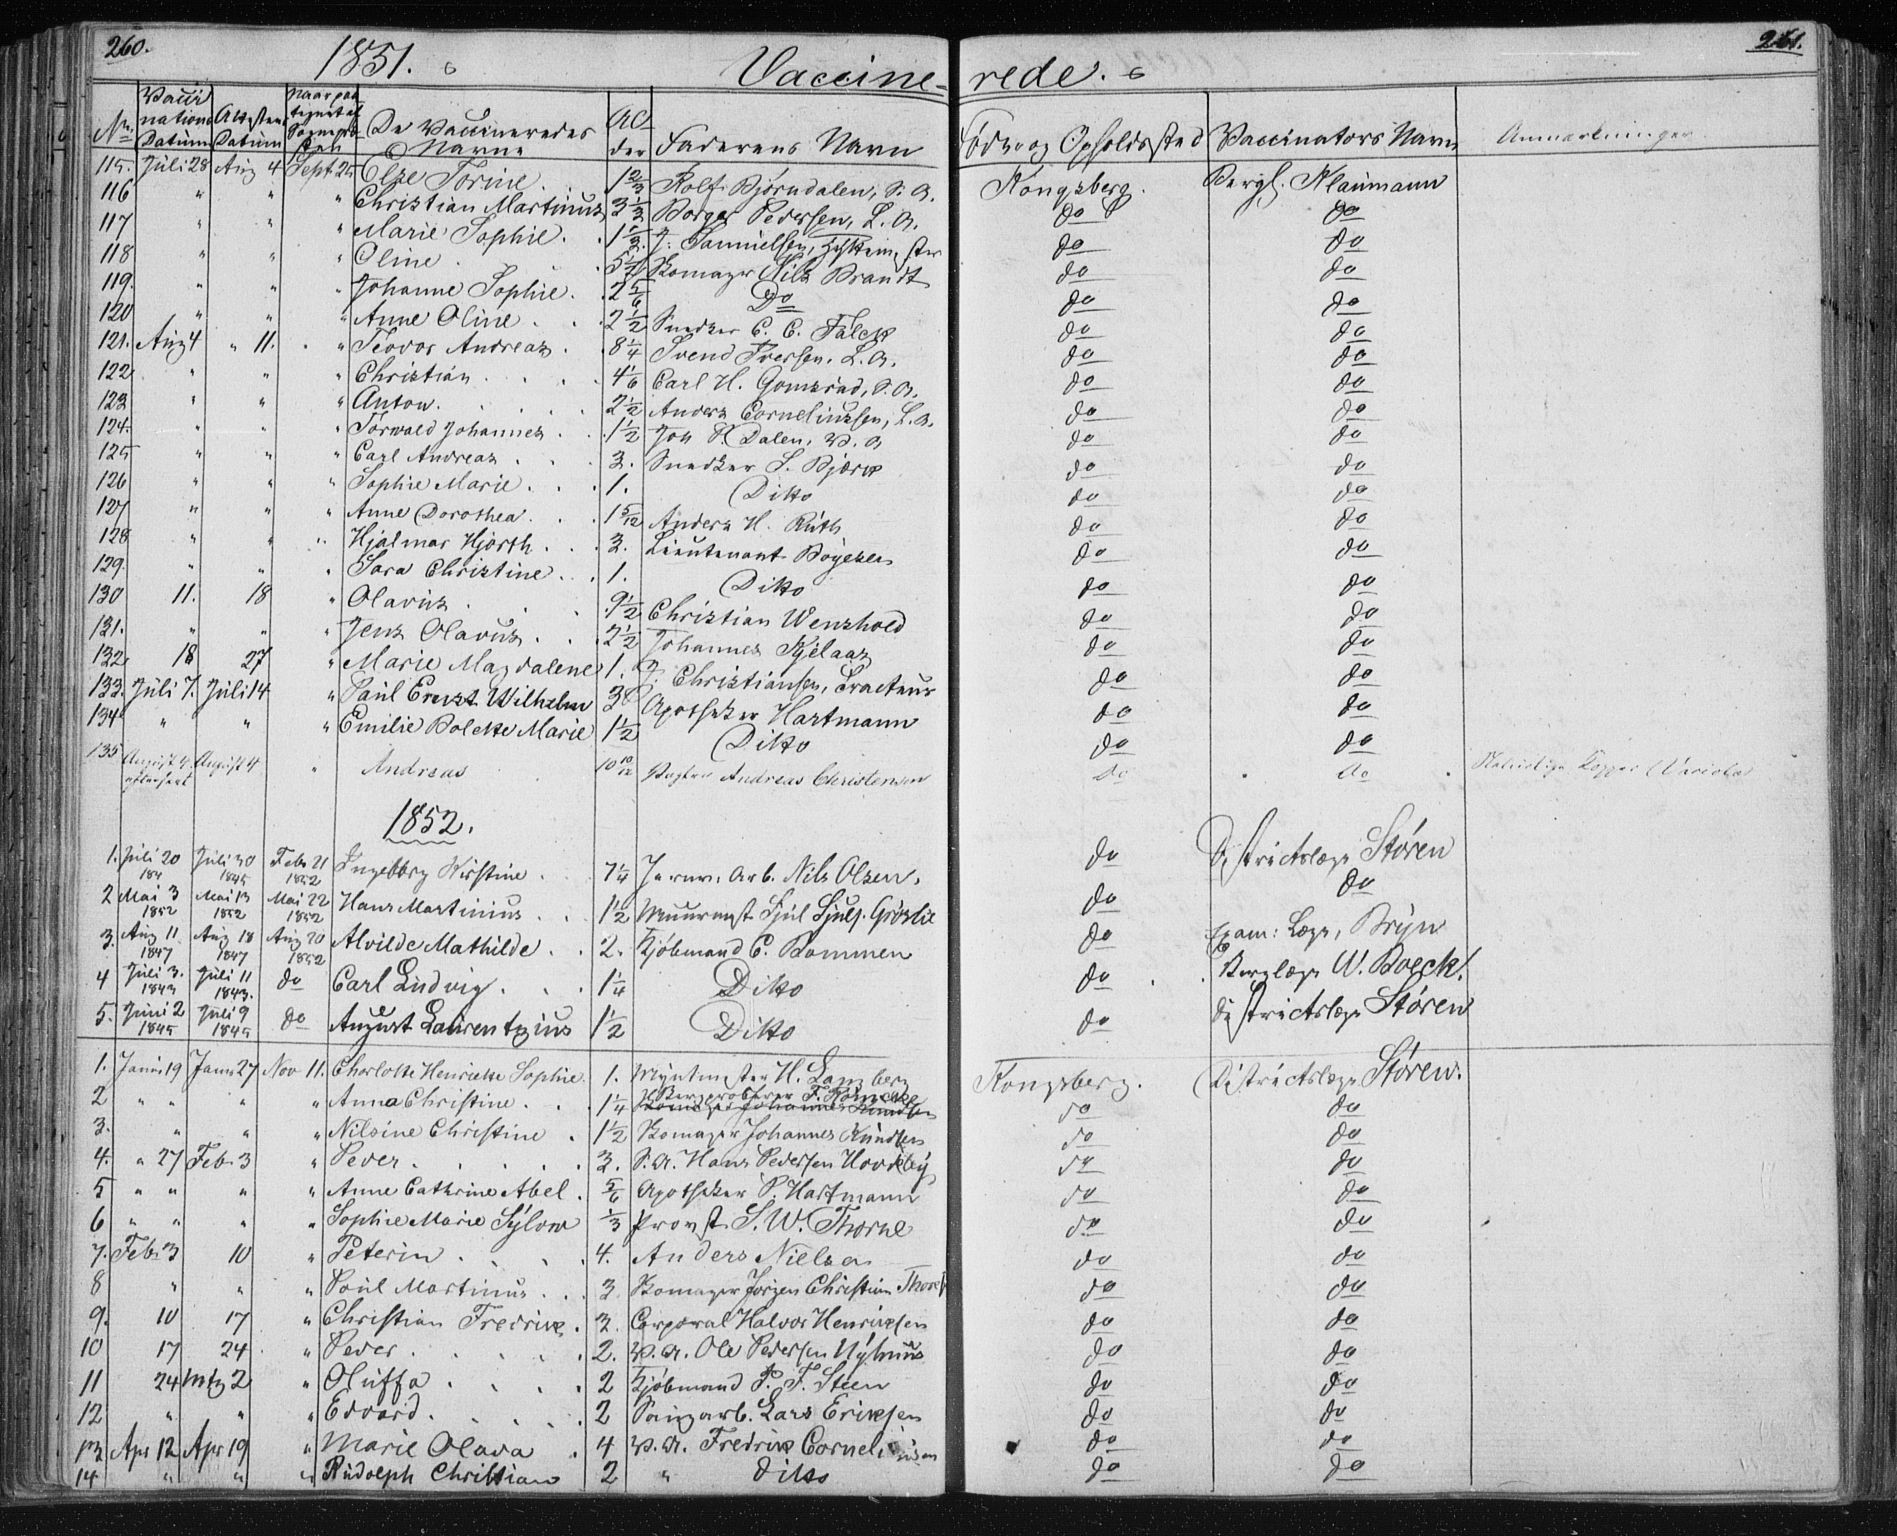 260.
1851.
Vaccine-
rede.
261.
No
Vacci
nations
Datum
Attestens
Datum
De Vaccineredes
Navne
Al
der
Faderens Navn
Føde og Opholdssted
Vaccinators Navn
Anmærkninger
115. Juli 28 Aug 4 Sept 25 Else Torine. 1 2/3 Rolf Bjørndalen, S. A. Kongsberg. Bergl. Naumann
116 " " " Christian Martinus 3 1/3 Borger Pedersen, L. A. do do
117 " " " Marie Sophie. 1 1/3 J. Samuelsen, do do
118 " " " Oline. Komager Nils Brandt do do
119. " " " Johanne Sophie. 2 5/6 Do do do
120 " " " Anne Oline. 2 1/2 Snedker C. C. Falck do do
121. Aug 4 " 11. " Teodor Andreas. 8 1/4 Svend Iversen. L. A. do do
122 " " " Christian. 4 1/6 Carl H. Gomsrud, S. A. do do
123 " " " Anton. 2 1/2 Anders Corneliussen, L. A. do do
124. " " " Torwald Johannes. 1 1/2 Jon P. Dalen, V. A do do
125 " " " Carl Andreas. 3. Snedker S. Bjærk do do
126 " " " Sophie Marie. 1. Ditto do do
127 " " " Anne Dorothea. 1 5/12 Anders H. Ruth do do
128 " " " Hjalmar Hjorth. 3. Lieutenant Boyesen do do
129. " " " Sara Christine. 1. Ditto do do
130 11. 18 " Olavus. 9 1/2 Christian Wenshold do do
131. " " " Jens Olavus. 2 1/2 Johannes Kjelaas do do
132 18 27 " Marie Magdalene 1. J. Christiansen, Tracteur do do
133. Juli 7. Juli 14 " Paul Ernst Wilhelm 3 Apotheker Hartmann do do
134 " " " Emilie Bolette Marie 1 1/2 Ditto do do
135 August 4 August 4 " Andreas 10 10/12 Andreas Christensen do " do Naturlige Kopper (Variola
efterseet
1852.
1. Juli 20 Juli 30 1845 Febr 21 1852 Ingeborg Kirstine. 7 1/4 Jernv. Arb. Nils Olsen. do Districtslæge Støren
2 Mai 3 1852 Mai 13 1852 Mai 22 1852 Hans Martinius. 1 1/2 Muurmest. Grøslie do do
3. Aug 11 1847 Aug 18 1847 Aug 20 1852 Alvilde Mathilde. 2. Kjøbmand C. Bommen do Exam: Læge, Bryn
4 Juli 3. 1843 Juli 11 1843. do Carl Ludvig. 1 1/4 Ditto do Berglæge W. Boeck.
5. Juni 2 1845 Juli 9 1845 do August Laurentzius 1 1/2 Ditto do Districtslæge Støren
1. Janu 19 Janu 27 Nov 11. Charlotte Henriette Sophie. 1. Myntmester H. Langberg Kongsberg. Districtslæge Støren.
2 " " " Anna Christine. 1 1/4 Bergproberer F. do do
3. " " " Nilsine Christine. 1 1/2 Komager Johannes Knudsen do do
4. " 27 Feb. 3 " Peder. 3. S. A. Hans Pedersen Hovdeby do do
5 " " " " Anne Cathrine Abel. 5/6 Apotheker P. Hartmann do do
6 " " " " Sophie Marie Sylow 1/3 Provst S. W. Thorne do do
7. Feb. 3 10 " Peterin. 4. Anders Nielsen do do
8 " " " Poul Martinus. 3 Komager Jørgen Christian do do
9. 10 17 " Christian Fredrik. 3. Corporal Halvor Henriksen do do
10 17 24 " Peder. 2. V. A. Ole Pedersen Nyhuus do do
11 24 Mtz 2 " Oluffa. 2 Kjøbmand P. F. Steen do do
12 " " " Edvard. 2 Saugarb. Lars Eriksen do do
13 Apr 12 Apr 19 " Marie Olava. 4 V. A. Fredrik Corneliusen do do
14 " " " Rudolph Christian 2 " Ditto do do